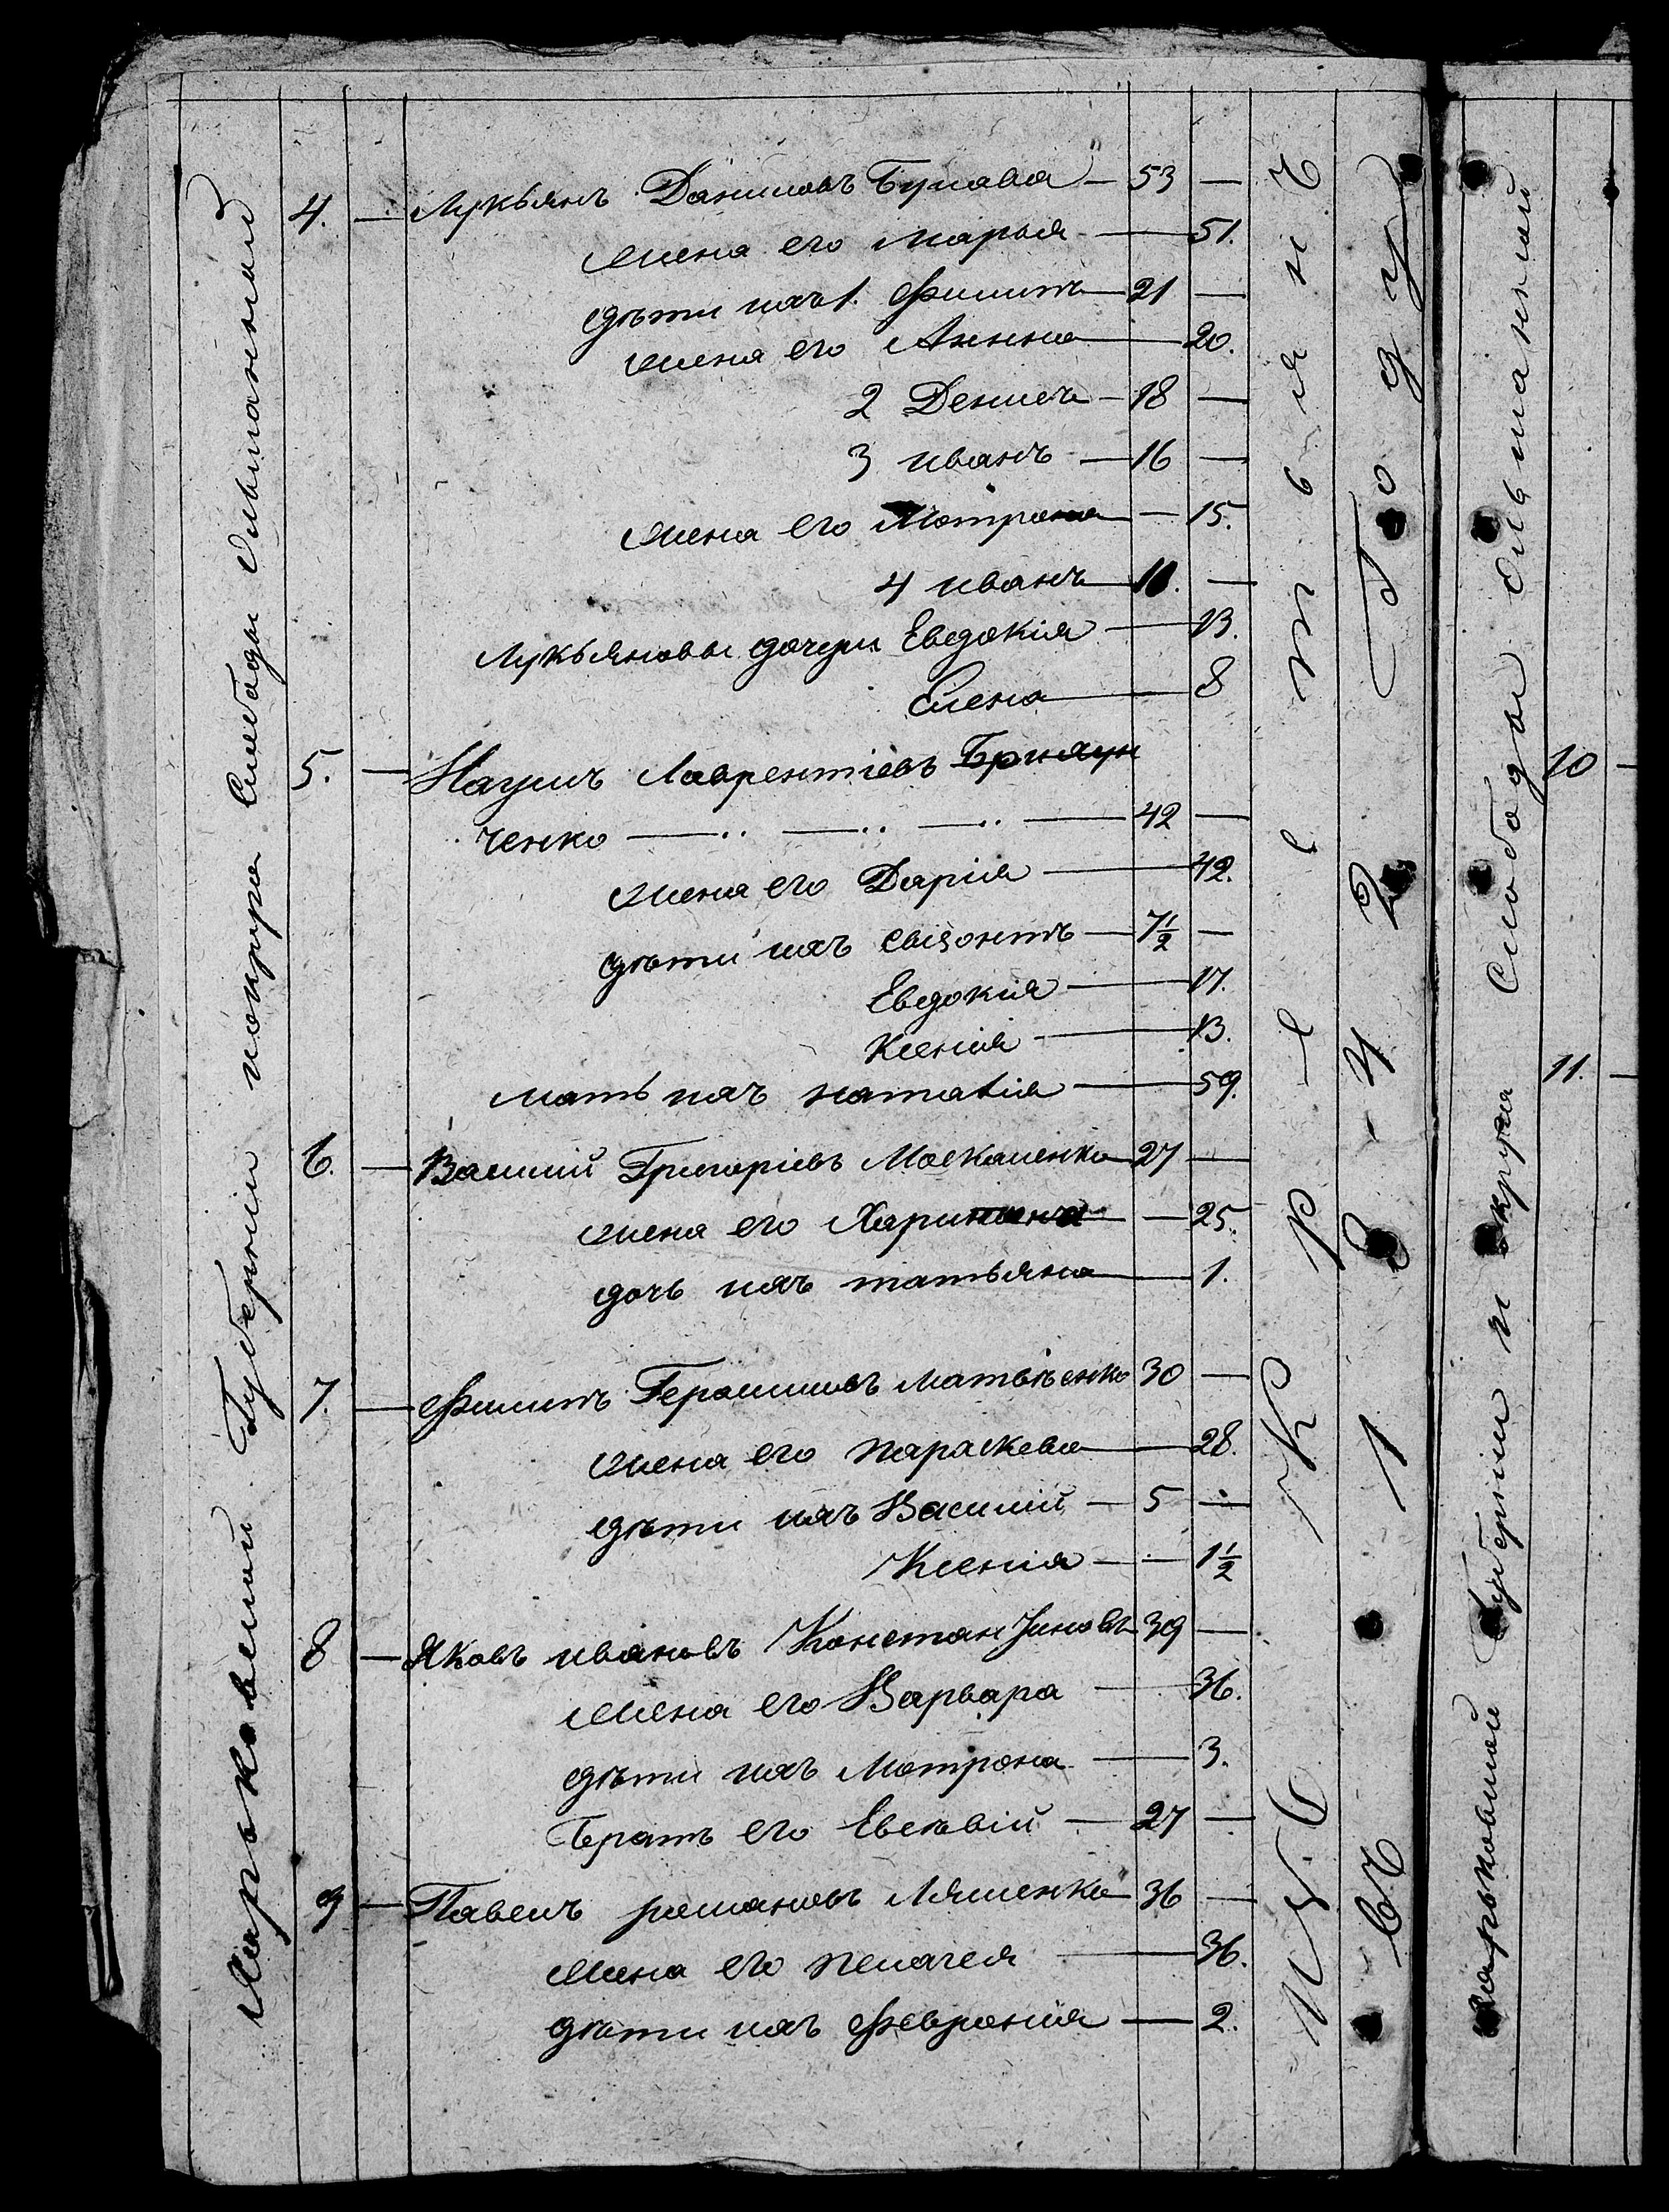 Харьковской Губернии и округа Слободы Ольшанной
4. — Лукьянъ Даниловъ Булава — 53 —
жена его марья — 51.
дѣти ихъ 1. Филипъ — 21 —
жена его Анна — 20.
2 Денисъ — 18 —
3 иванъ — 16 —
жена его Мотрона — 15.
4 иванъ — 10. —
Лукьяновы дочери Евдокія — 13.
Елена — 8
5. — Наумъ Лаврентіевъ
ченко — .. — .. — .. — 42 —
жена его Дарія — 42.
дѣти ихъ — 7½ —
Евдокія — 17.
Ксенія — 13.
мать ихъ наталія — 59.
6. — Василий Григоріевъ Москаленко — 27 —
жена его — 25.
дочь ихъ татьяна — 1.
7. — Филипъ Герасимовъ матвѣенко 30 —
жена его параскева — 28.
дѣти ихъ Василій — 5 —
Ксенія — 1½
8 — Яковъ ивановъ Константиновъ 39 —
жена его Варвара — 36.
дѣти ихъ Мотрона — 3.
Братъ его Евсѣвій — 27 —
9 — Павелъ романовъ Ляшенко 36 —
жена его пелагея — 36.
дѣти ихъ Феврония — 2.
крестьянъ
1 8 - 4 2 Году
Харьковской Губернии и округа Слободы Ольшанной
10 —
11. —